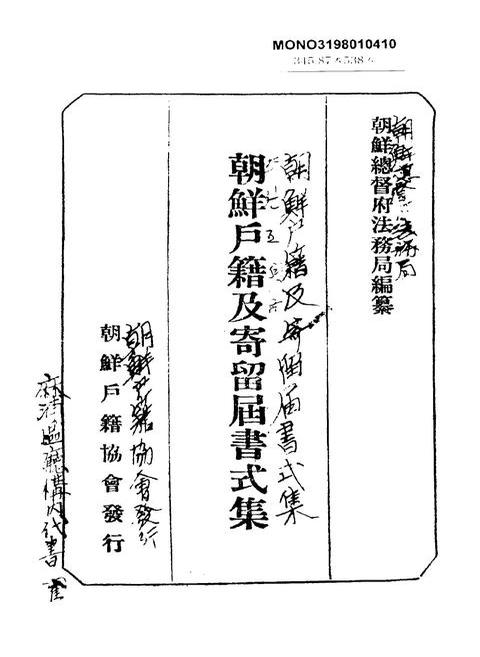 MONO3198010410
345.87 ㅈ538ㅈ
朝鮮總督府法務局編纂
朝鮮總督府法務局
朝鮮戶籍及寄留届書式集
朝鮮戶籍及寄留届書式集
朝鮮戶籍協會發行
朝鮮戶籍協會發行
構內代書